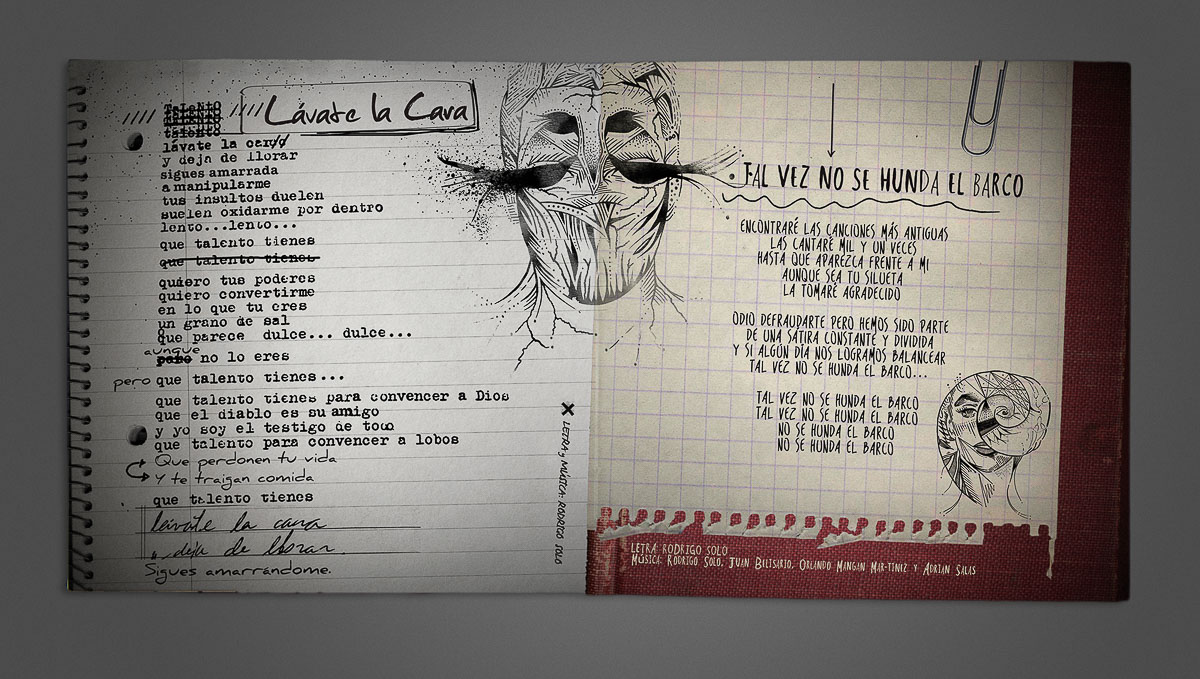 Talento
talento
Lávate la Cara
lávate la cara
y deja de llorar
sigues amarrada
a manipularme
tus insultos duelen
suelen oxidarme por dentro
lento...lento...
que talento tienes
que talento tienes
quiero tus poderes
quiero convertirme
en lo que tu eres
un grano de sal
que parece dulce... dulce...
aunque
pero no lo eres
pero que talento tienes...
que talento tienes para convencer a Dios
que el diablo es su amigo
y yo soy el testigo de todo
que talento para convencer a lobos
Que perdonen tu vida
Y te traigan comida
que talento tienes
lávate la cara
y deja de llorar
Sigues amarrándome.
LETRA y MÚSICA: RODRIGO SOLO
TAL VEZ NO SE HUNDA EL BARCO
ENCONTRARÉ LAS CANCIONES MÁS ANTIGUAS
LAS CANTARÉ MIL Y UN VECES
HASTA QUE APAREZCA FRENTE A MI
AUNQUE SEA TU SILUETA
LA TOMARÉ AGRADECIDO
ODIO DEFRAUDARTE PERO HEMOS SIDO PARTE
DE UNA SÁTIRA CONSTANTE Y DIVIDIDA
Y SI ALGÚN DÍA NOS LOGRAMOS BALANCEAR
TAL VEZ NO SE HUNDA EL BARCO...
TAL VEZ NO SE HUNDA EL BARCO
TAL VEZ NO SE HUNDA EL BARCO
NO SE HUNDA EL BARCO
NO SE HUNDA EL BARCO
LETRA: RODRIGO SOLO
MÚSICA: RODRIGO SOLO, JUAN BELISARIO, ORLANDO MANGAN MAR-TINEZ Y ADRIAN SALAS